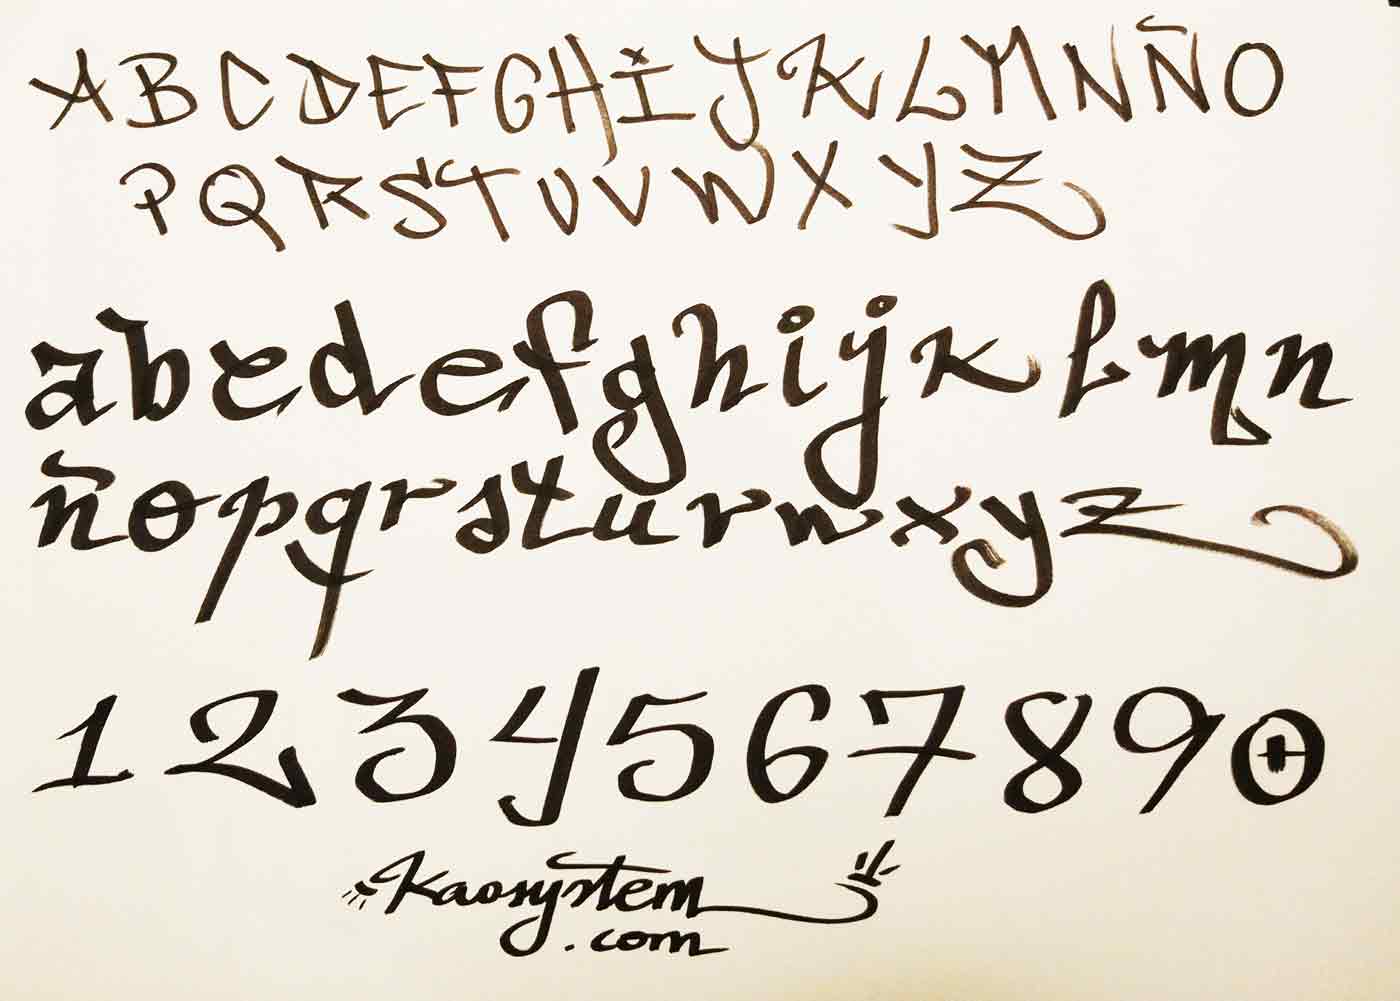 A B C D E F G H I J K L M N Ñ O
P Q R S T U V W X Y Z
a b c d e f g h i j k l m n
ñ o p q r s t u v w x y z
1 2 3 4 5 6 7 8 9 0
Kaosystem
.com